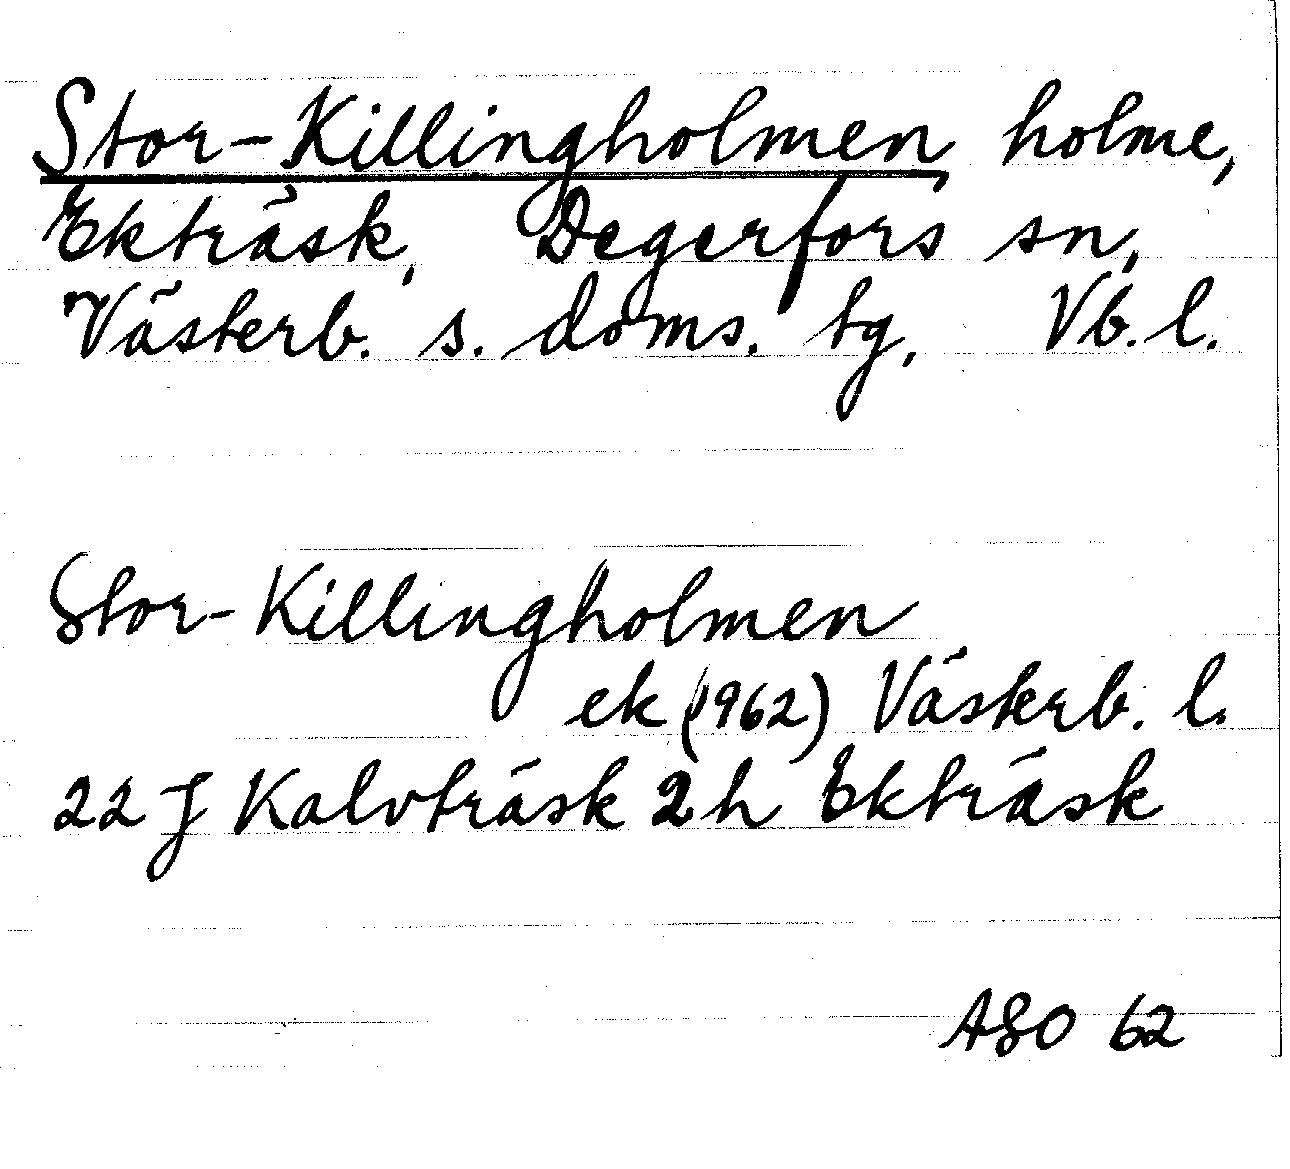 Stor-Killingholmen holme,
Ekträsk, Degerfors sn,
Västerb. s. doms. tg, Vb. l.
Stor-Killingholmen
ek (1962) Västerb. l.
22 J Kalvträsk 2 h Ekträsk
ASO 62